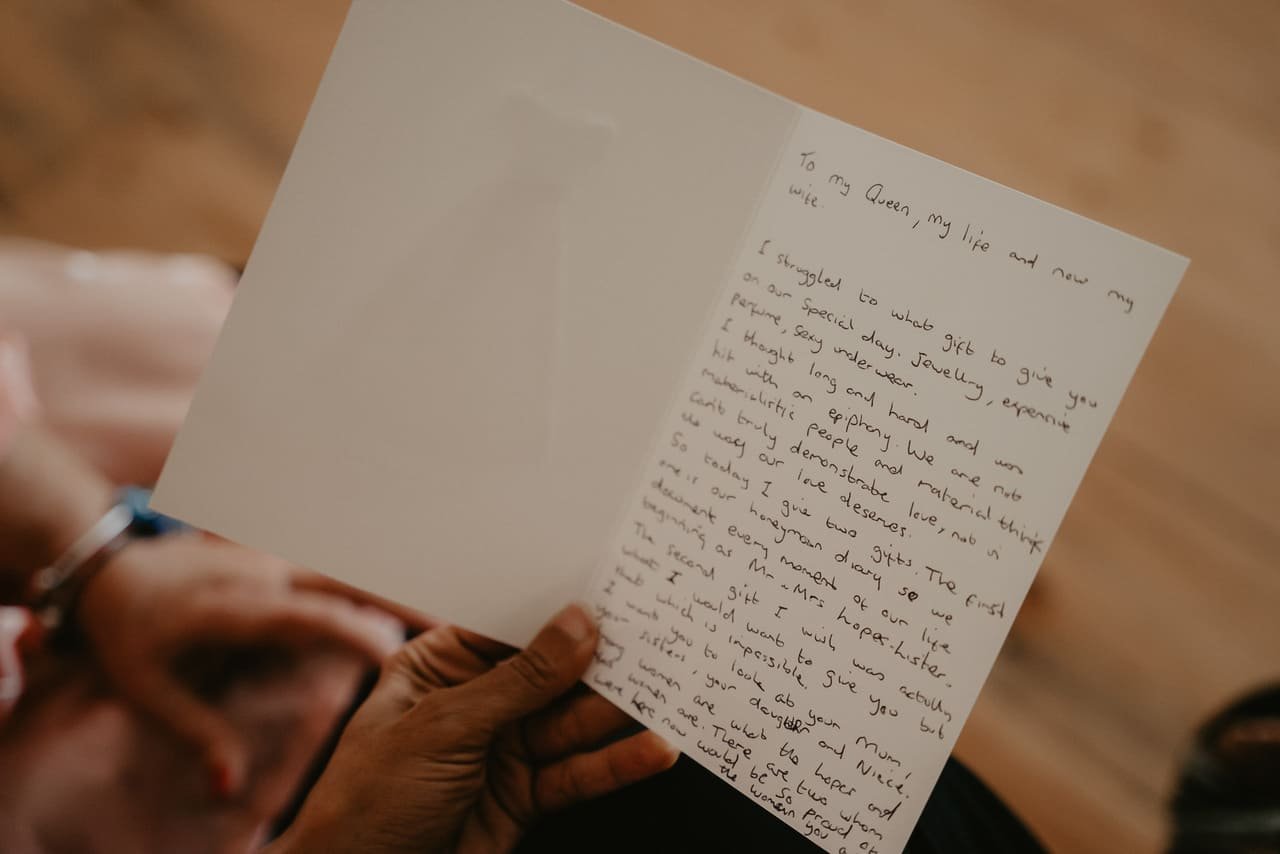 To my Queen, my life and now my
wife.
I struggled to what gift to give you
on our special day. Jewellry, expensive
perfume, sexy underwear.
I thought long and hard and was
hit with an epiphany. We are not
materialistic people and material things
can't truly demonstrate love, not in
the way our love deserves.
So today I give two gifts. The first
one is our honeymoon diary so we
document every moment of our life
beginning as Mr & Mrs Loper-Lister.
The second gift I wish was actually
what I would want to give you but
that which is impossible.
I want you to look at your Mum,
your sisters, your daughter and Niece.
women are what the hopes and
women are. There are two whom
were here now would be so proud of
the woman you a